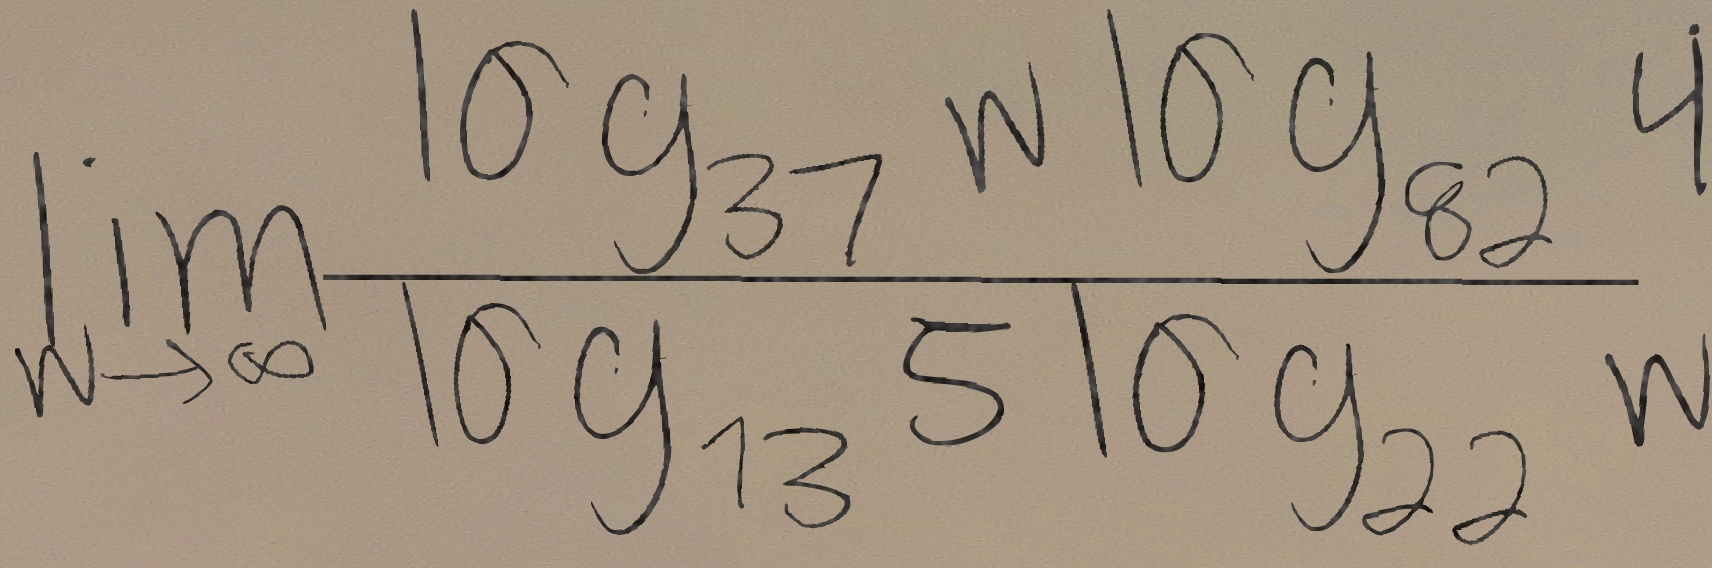 \lim_{w \to \infty} \frac{\log_{37} w \log_{82} 4}{\log_{13} 5 \log_{22} w}